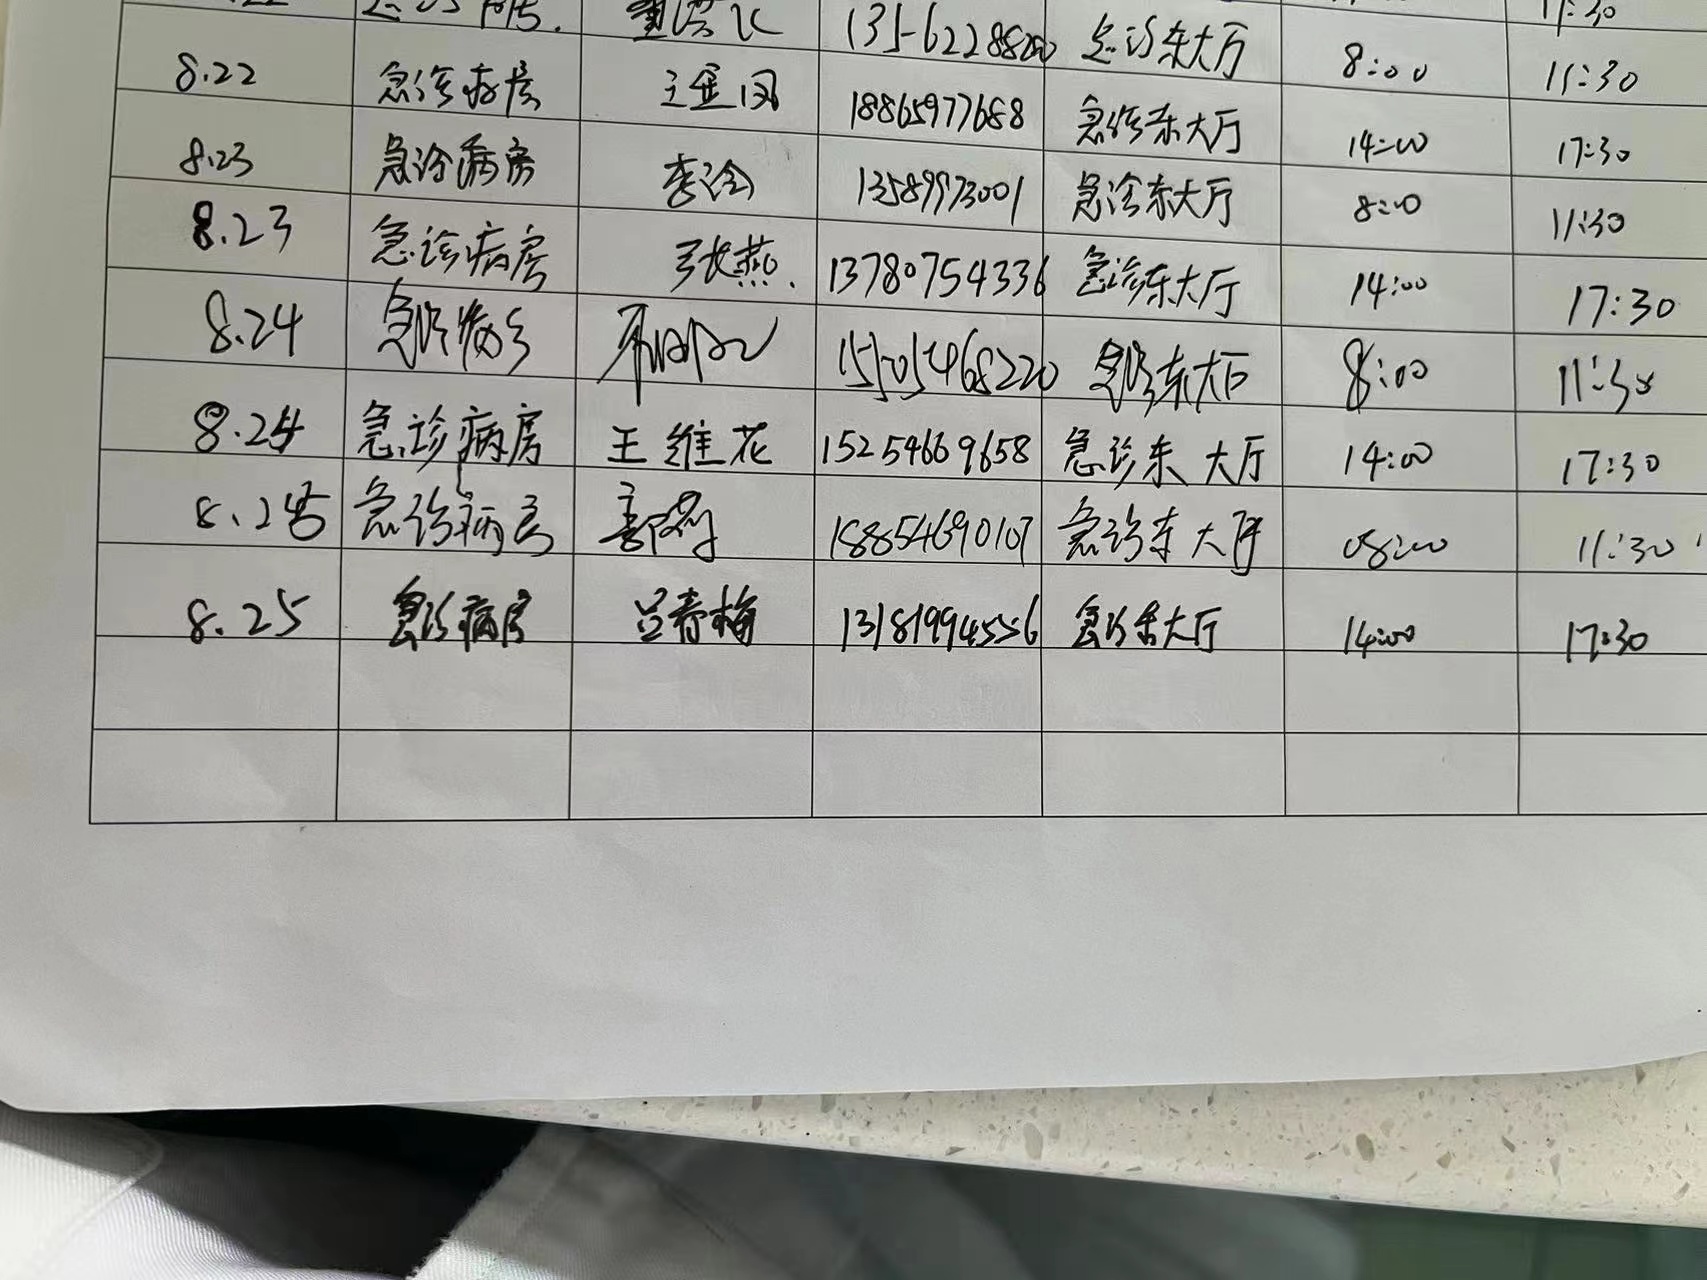 13562288200 急诊东大厅 8:00 11:30
8.22 急诊病房 18865977688 急诊东大厅 14:00 17:30
8.23 急诊病房 李冷 13589973001 急诊东大厅 8:00 11:30
8.23 急诊病房 张燕. 13780754336 急诊东大厅 14:00 17:30
8.24 急诊病房 15705468220 急诊东大厅 8:00 11:30
8.24 急诊病房 王维花 15254669658 急诊东大厅 14:00 17:30
8.25 急诊病房 18854690107 急诊东大厅 08:00 11:30
8.25 急诊病房 吕春梅 13181994556 急诊东大厅 14:00 17:30